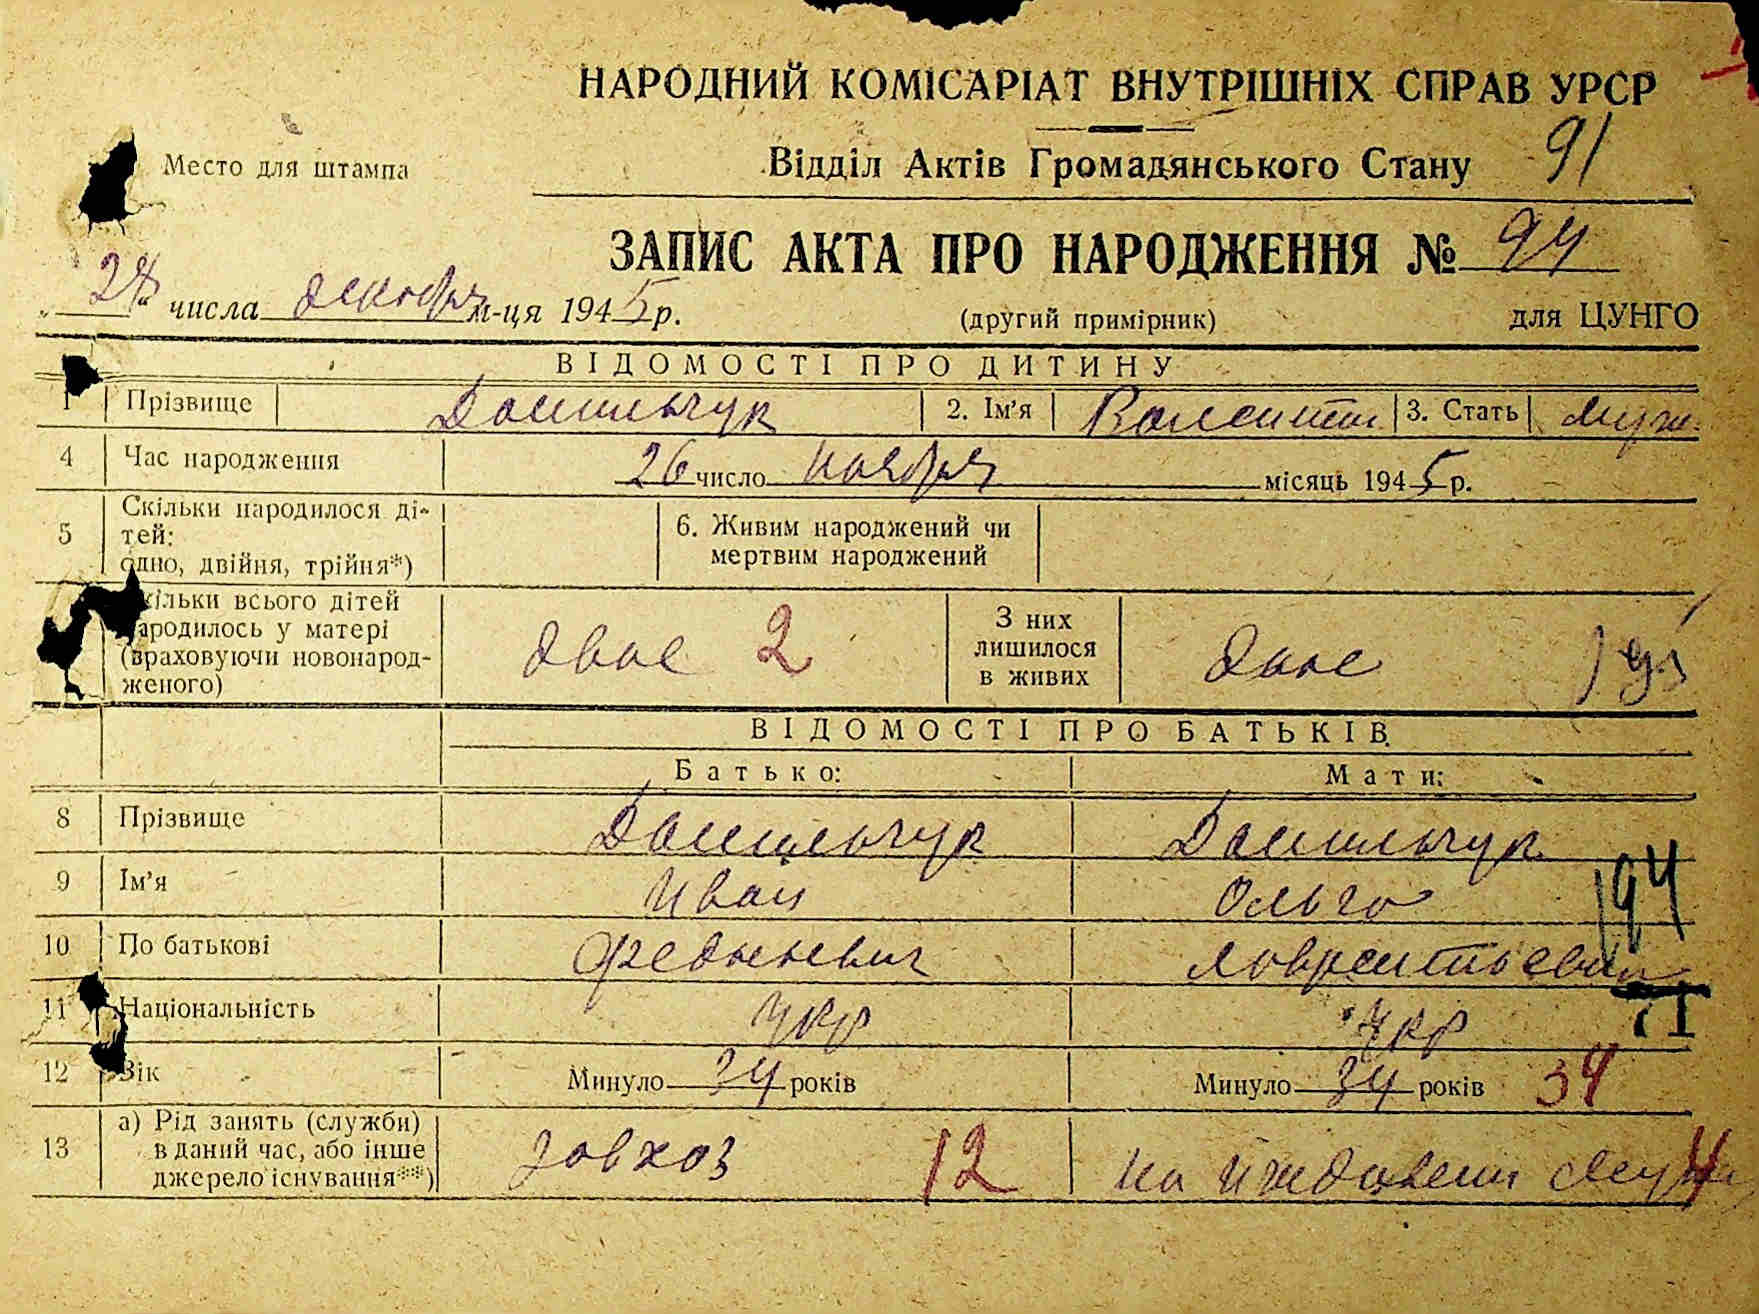 НАРОДНИЙ КОМІСАРІАТ ВНУТРІШНІХ СПРАВ УРСР
Место для штампа
Відділ Актів Громадянського Стану 91
ЗАПИС АКТА ПРО НАРОДЖЕННЯ № 94
числа декабря м-ця 1945 р.
(другий примірник) для ЦУНГО
ВІДОМОСТІ ПРО ДИТИНУ
1 Прізвище Данильчук 2. Ім'я Валентин 3. Стать муж.
4 Час народження 26 число ноября місяць 1945 р.
5 Скільки народилося дітей: одно, двійня, трійня*) 6. Живим народжений чи мертвим народжений
Скільки всього дітей народилось у матері (враховуючи новонародженого) двое 2 З них лишилося в живих двое
ВІДОМОСТІ ПРО БАТЬКІВ
Батько: Мати:
8 Прізвище Данильчук Данильчук
9 Ім'я Иван Ольга 194
10 По батькові Лаврентьевна
11 Національність укр укр
12 Вік Минуло 34 років Минуло 34 років 34
13 а) Рід занять (служби) в даний час, або інше джерело існування**) завхоз 12 на иждевении мужа 4